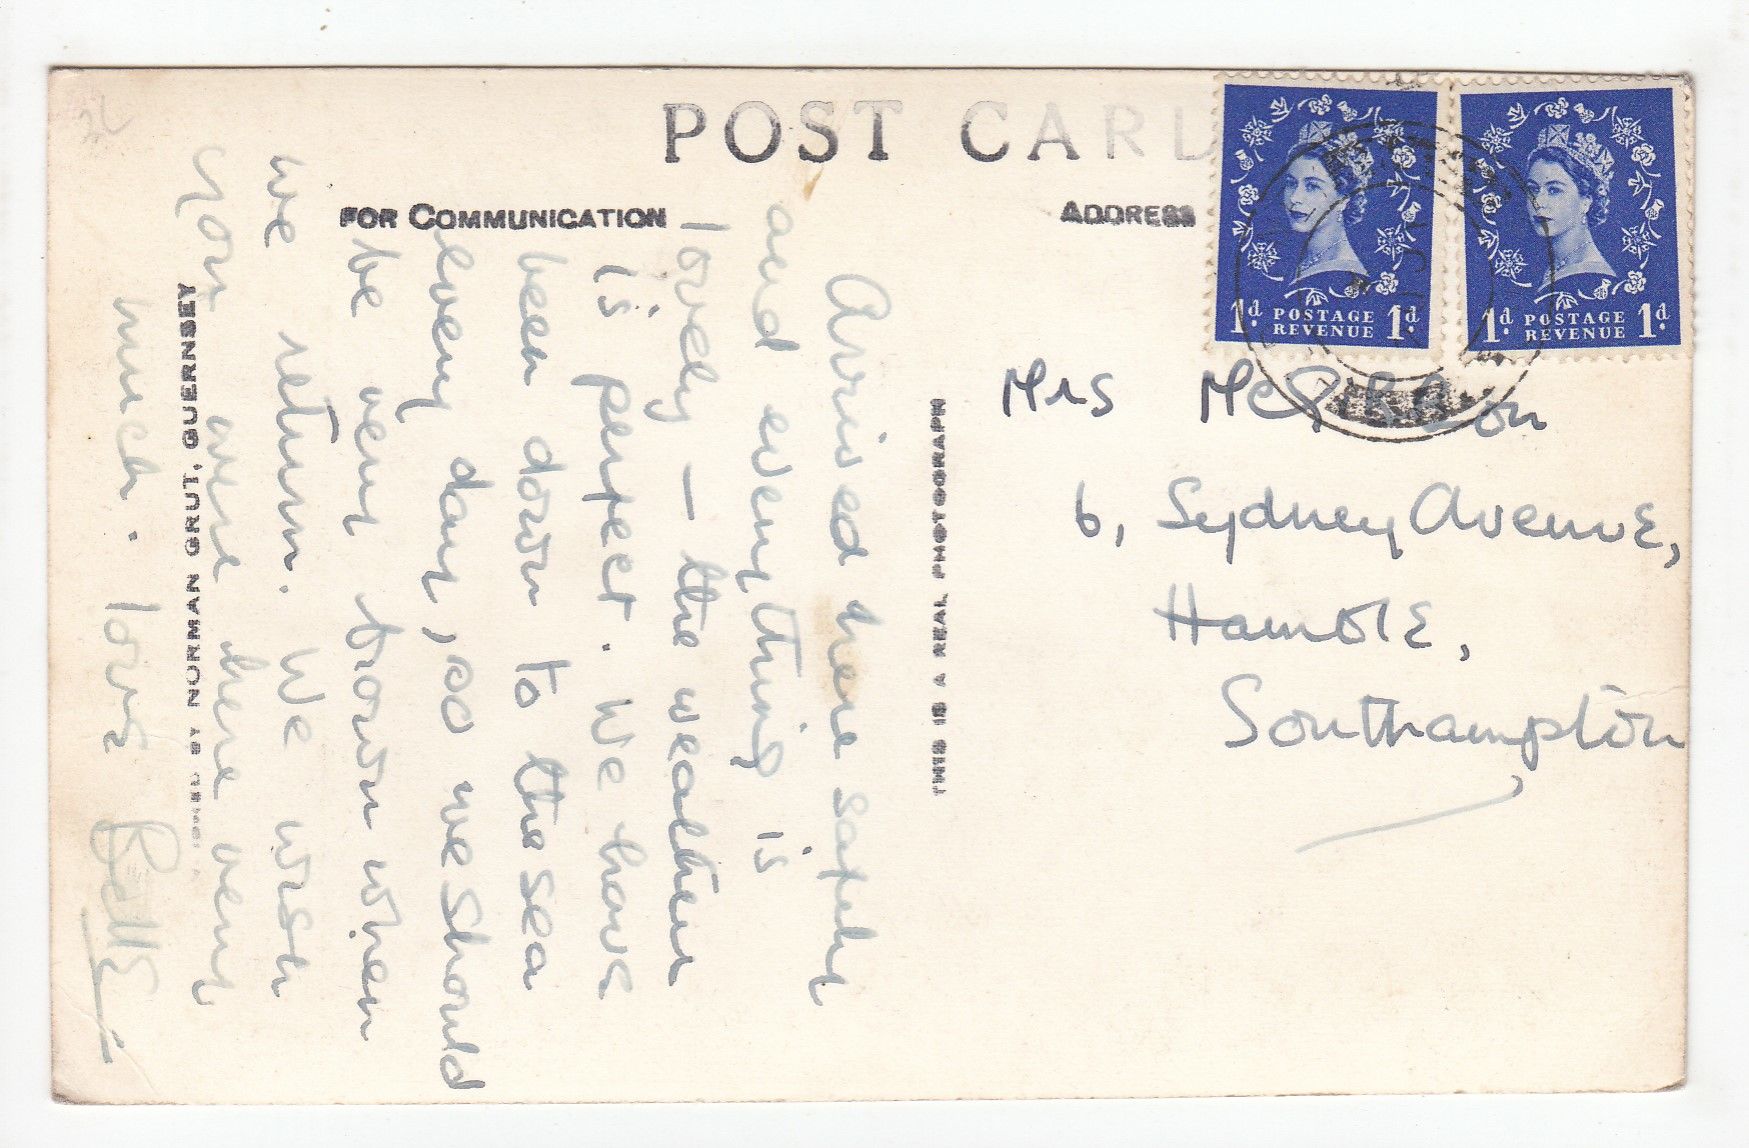 POST CARD
FOR COMMUNICATION
ADDRESS
Arrived here safely
and everything is
lovely — the weather
is perfect. We have
been down to the sea
every day, so we should
be very brown when
we return. We wish
you were here very
much. love
BY NORMAN GRUT, GUERNSEY
THIS IS A REAL PHOTOGRAPH
1d POSTAGE REVENUE 1d
1d POSTAGE REVENUE 1d
Mrs
6, Sydney Avenue,
Hamble,
Southampton